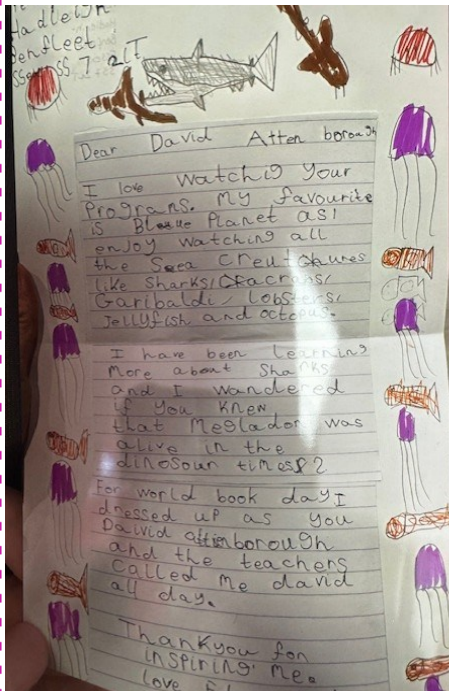 Hadleigh
Benfleet
SS7 2LT
Dear David Atten borough
I love watchig your
Prograns. My favourite
is Bleue Planet as I
enjoy watching all
the Sea Creutchures
like sharks/
Garibaldi/ lobsters/
Jellyfish and octopus.
I have been learning
more about sharks
and I wandered
if you knew
that Meglador was
alive in the
dinosour times?
For world book day I
dressed up as you
Daivid attinborough
and the teachers
called me david
all day.
Thankyou for
inspiring me.
love